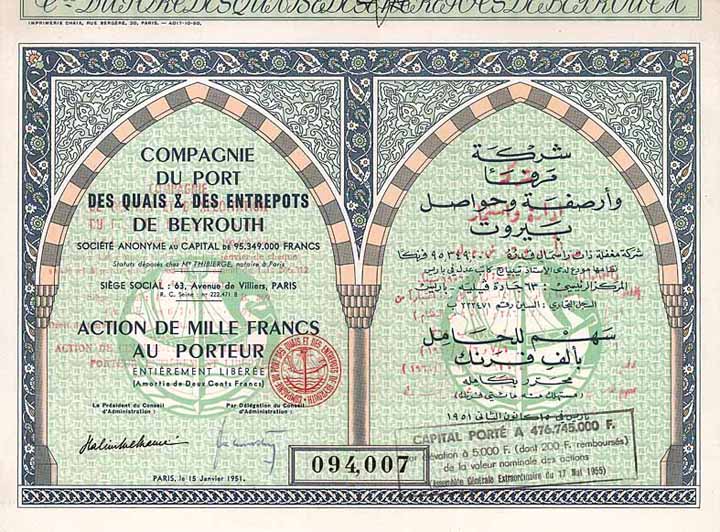 Cie DU PORT DES QUAIS & DES ENTREPOTS DE BEYROUTH
IMPRIMERIE CHAIX, RUE BERGÈRE, 20, PARIS. —
COMPAGNIE
DU PORT
DES QUAIS & DES ENTREPOTS
DE BEYROUTH
SOCIÉTÉ ANONYME AU CAPITAL DE 95.349.000 FRANCS
Statuts déposés chez Me THIBIERGE, notaire à Paris
SIÈGE SOCIAL : 63, Avenue de Villiers, PARIS
R. C. Seine : no 222.471 B
ACTION DE MILLE FRANCS
AU PORTEUR
ENTIÈREMENT LIBÉRÉE
(Amortie de Deux Cents Francs)
Le Président du Conseil
d'Administration :
Par Délégation du Conseil
d'Administration :
PARIS, le 15 Janvier 1951.
COMPAGNIE DU PORT DES QUAIS ET DES ENTREPOTS DE BEYROUTH
094,007
شركة
مرفإ
وأرصفة وحواصل
بيروت
شركة مغفلة ذات رأسمال قدره ٩٥٣٤٩٠٠٠ فرنكا
المركز الرئيسي : ٦٣ جادة فيليه باريس
السجل التجاري : السين رقم ٢٢٢٤٧١ ب
سهم للحامل
بألف فرنك
محرر بكامله
باريس في ١٥ كانون الثاني ١٩٥١
CAPITAL PORTÉ A 476.745.000 F.
par élévation à 5.000 F. (dont 200 F. remboursés)
de la valeur nominale des actions
(Assemblée Générale Extraordinaire du 17 Mai 1955)